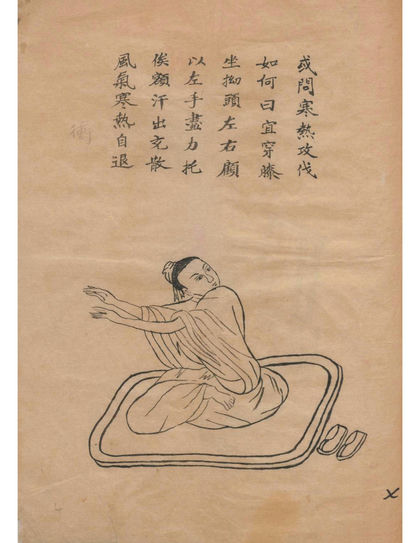 或問寒熱攻伐
如何曰宜穿膝
坐拗頭左右顧
以左手盡力托
俟額汗出充散
風氣寒熱自退
術
x